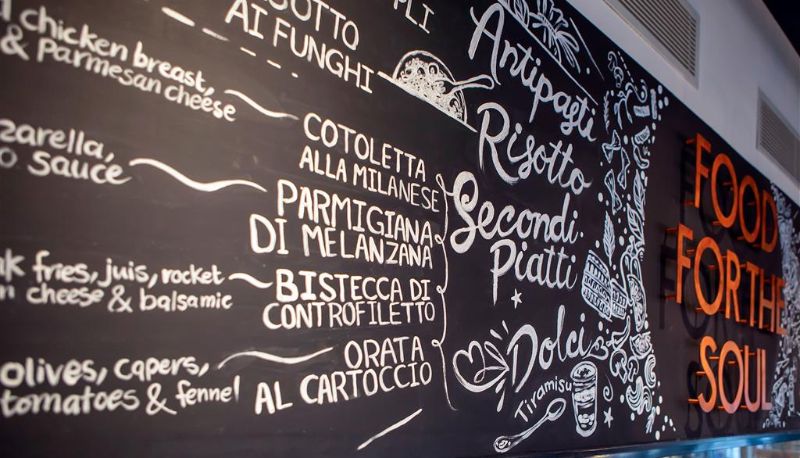 RISOTTO
AI FUNGHI
chicken breast,
& Parmesan cheese
COTOLETTA
ALLA MILANESE
sauce
PARMIGIANA
DI MELANZANA
fries, juis, rocket
cheese & balsamic
BISTECCA DI
CONTROFILETTO
olives, capers,
tomatoes & fennel
ORATA
AL CARTOCCIO
Antipasti
Risotto
Secondi
Piatti
Dolci
Tiramisu
FOOD
FOR THE
SOUL